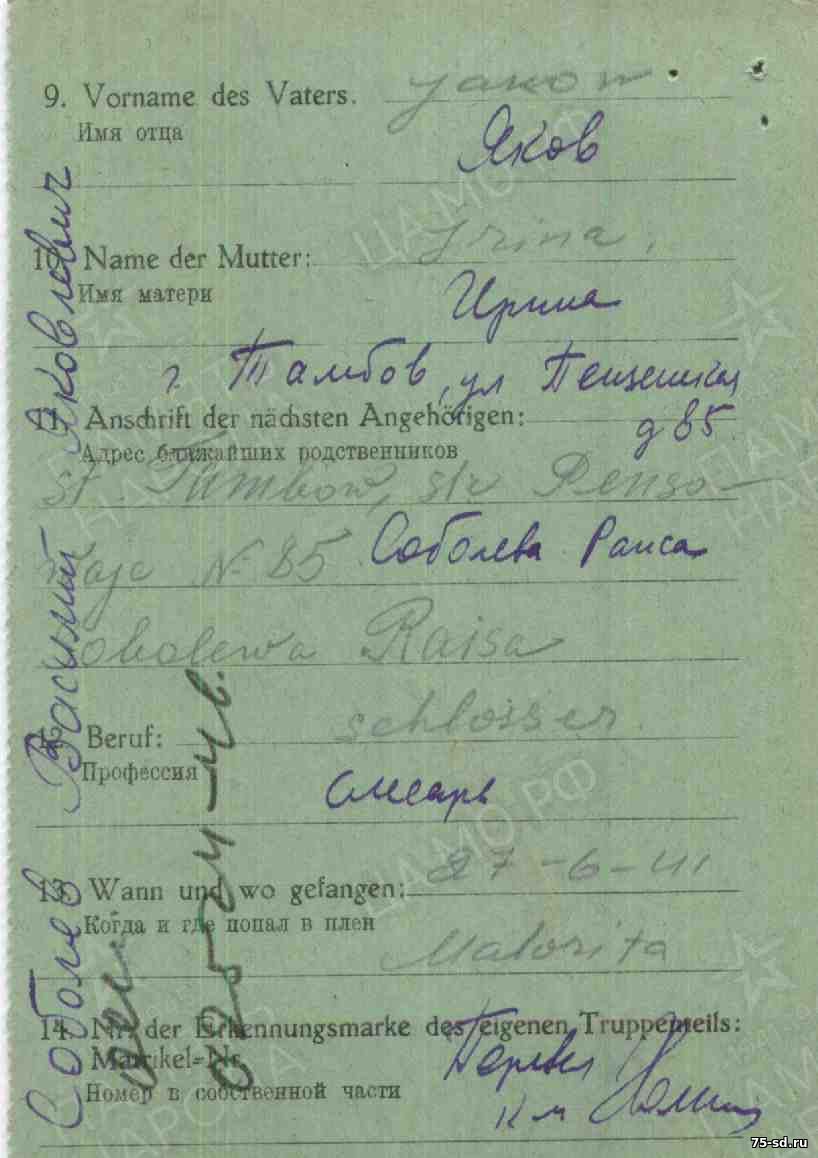 9. Vorname des Vaters. Jakow
Имя отца
Яков
10. Name der Mutter: Irina,
Имя матери
Ирина
г. Тамбов, ул Пензенская
11. Anschrift der nächsten Angehörigen:
д 85
Адрес ближайших родственников
st. Tambow, str Pensa-
kaje N 85
Соболева Раиса
Sobolewa Raisa
Beruf: schlosser
Профессия
слесарь
13. Wann und wo gefangen: 27-6-41
Когда и где попал в плен
Malorita
14. Nr. der Erkennungsmarke des eigenen Truppenteils:
Matrikel=Nr.
Номер в собственной части
Перевел
Соболев Василий Яковлевич
ЦАМО РФ
75-sd.ru